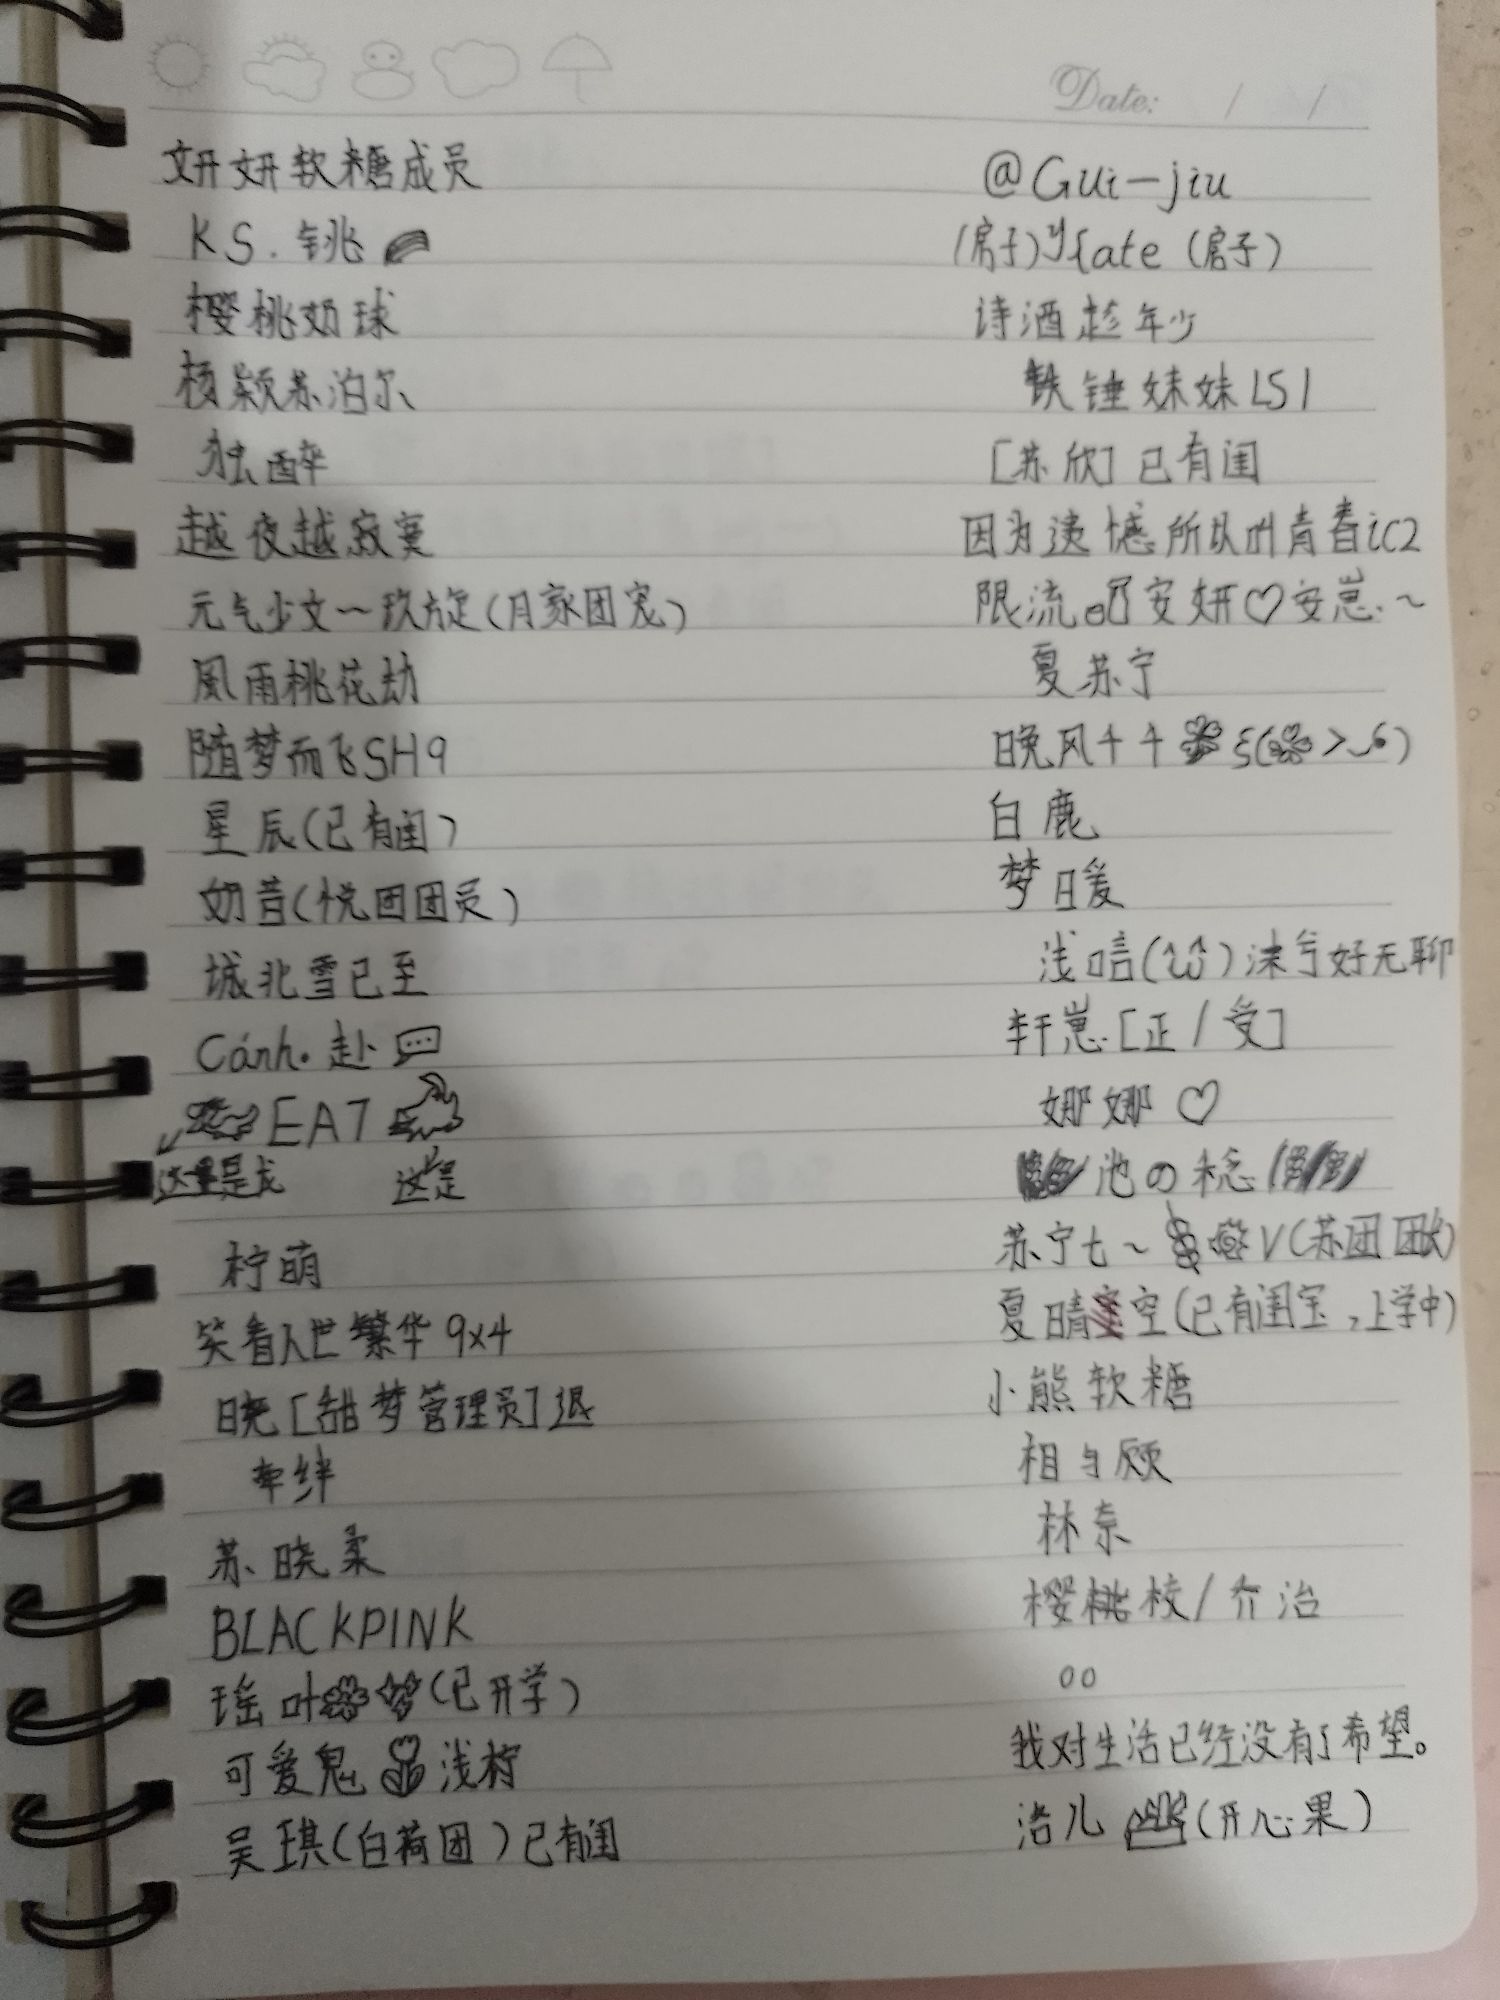 Date: / /
妍妍软糖成员
KS.铫
樱桃奶球
杨颖苏泊尔
独醉
越夜越寂寞
元气少女～玖旋(月家团宠)
風雨桃花劫
随梦而飞SH9
星辰(已有闺)
奶昔(悦团团员)
城北雪已至
Cánh.赴
EA7
这里是龙 这是
柠萌
笑看人世繁华9x4
晓[甜梦管理员]退
牵绊
苏晓柔
BLACKPINK
瑶叶(已开学)
可爱鬼 浅柠
吴琪(白荷团)已有闺
@Gui-jiu
(房子)fate(房子)
诗酒趁年少
铁锤妹妹LS1
[苏欣]已有闺
因为遗憾所以叫青春ic2
限流安妍♡安崽.~
夏苏宁
晚风千千
白鹿
梦暖
浅唁 沫兮好无聊
轩崽.[正/受]
娜娜♡
池の稔
苏宁七~ V(苏团团长)
夏晴空(已有闺宝,上学中)
小熊软糖
相与顾
林奈
樱桃校/乔治
oo
我对生活已经没有了希望。
浩儿(开心果)